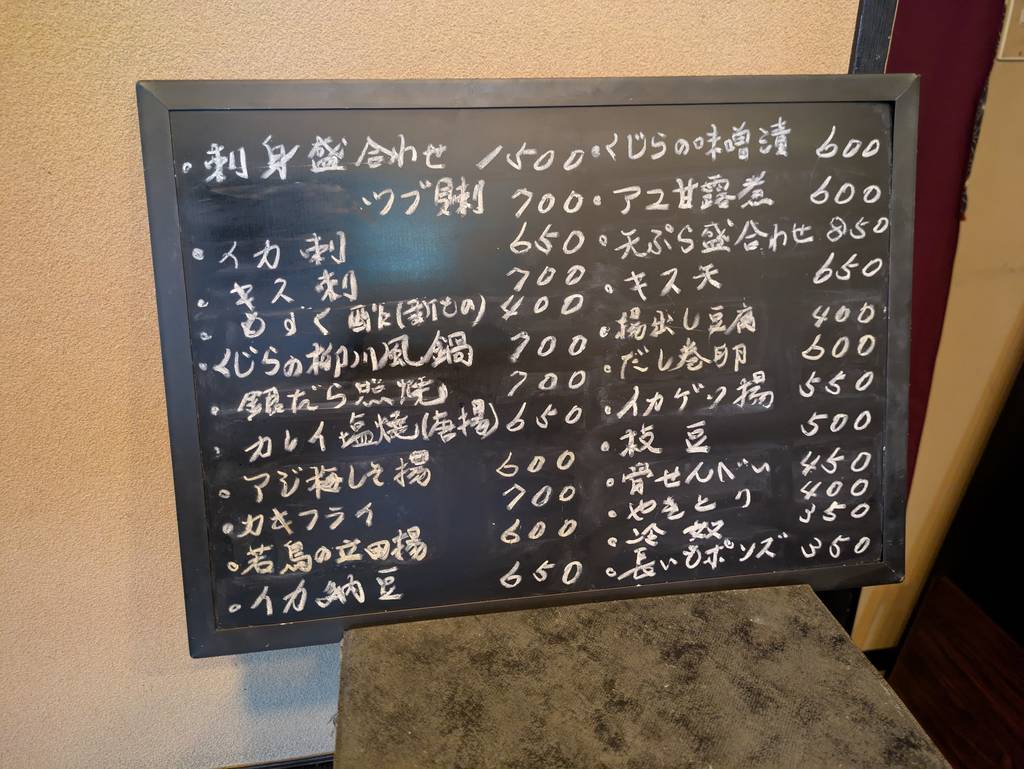 ・刺身盛合わせ 1500
ツブ貝刺 700
・イカ刺 650
・キス刺 700
・もずく酢 400
・くじらの柳川風鍋 700
・銀だら照焼 700
・カレイ塩焼(唐揚) 650
・アジ梅しそ揚 600
・カキフライ 700
・若鳥の立田揚 600
・イカ納豆 650
・くじらの味噌漬 600
・アユ甘露煮 600
・天ぷら盛合わせ 850
・キス天 650
・揚出し豆腐 400
・だし巻卵 600
・イカゲソ揚 550
・枝豆 500
・骨せんべい 450
・やきとり 400
・冷奴 350
・長いもポンズ 350